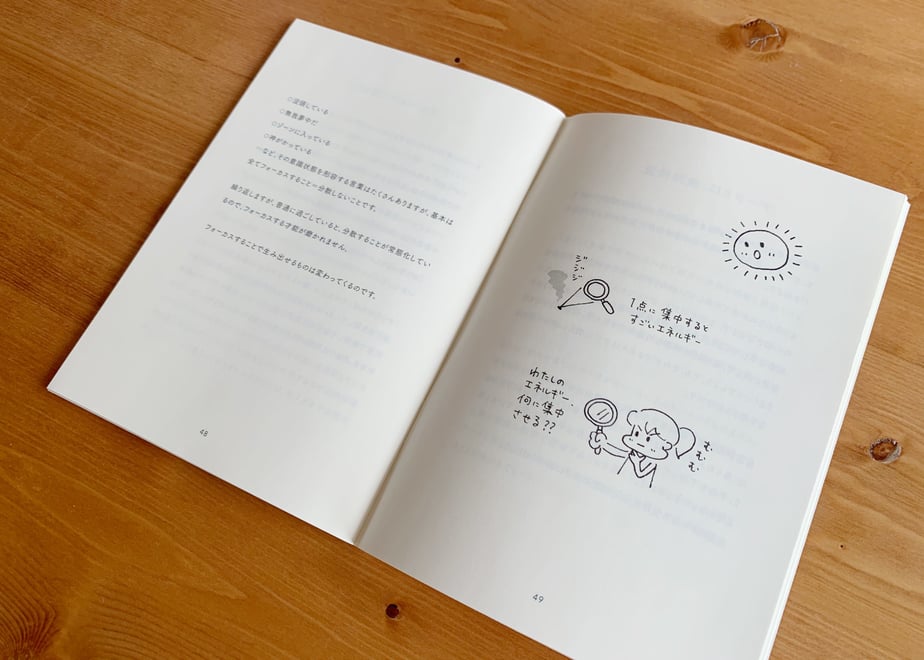 ○没頭している
○無我夢中だ
○ゾーンに入っている
○神がかっている
…など、その意識状態を形容する言葉はたくさんありますが、基本は
全てフォーカスすること=分散しないことです。
繰り返しますが、普通に過ごしていると、分散することが常態化してい
るので、フォーカスする才能が磨かれません。
フォーカスすることで生み出せるものは変わってくるのです。
48
ジ゛
ジ
ジ
1点に集中すると
すごいエネルギー
わたしの
エネルギー、
何に集中
させる??
む
む
む
49